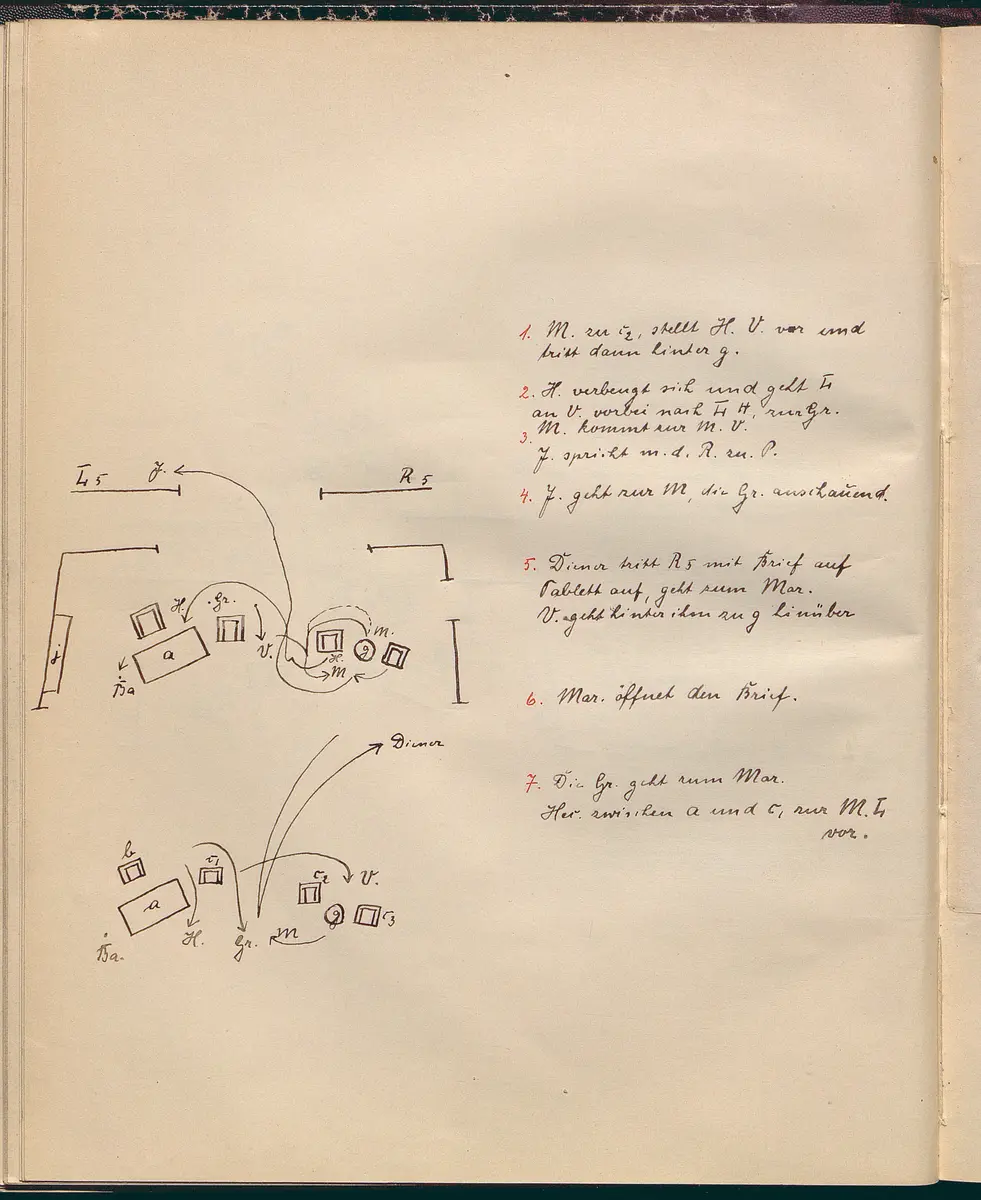 1. M. zu c2, stellt H. V. vor und
tritt dann hinter g.
2. H. verbeugt sich und geht L
an V. vorbei nach L H, zur Gr.
3. M. kommt zur M. V.
J. spricht m. d. R. zu P.
4. J. geht zur M, die Gr. anschauend.
5. Diener tritt R 5 mit Brief auf
Tablett auf, geht zum Mar.
V. geht hinter ihm zu g hinüber
6. Mar. öffnet den Brief.
7. Die Gr. geht zum Mar.
Her. zwischen a und c, zur M. L
vor.
L 5
J.
R 5
H.
Gr.
V.
a
j
Ba
H.
M.
g
M
Diener
b
c1
a
c2
V.
g
c3
H.
Gr.
M
Ba.